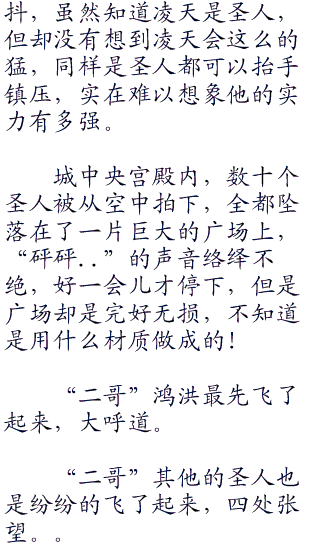 抖，虽然知道凌天是圣人，
但却没有想到凌天会这么的
猛，同样是圣人都可以抬手
镇压，实在难以想象他的实
力有多强。
城中央宫殿内，数十个
圣人被从空中拍下，全都坠
落在了一片巨大的广场上，
“砰砰..”的声音络绎不
绝，好一会儿才停下，但是
广场却是完好无损，不知道
是用什么材质做成的！
“二哥”鸿洪最先飞了
起来，大呼道。
“二哥”其他的圣人也
是纷纷的飞了起来，四处张
望。。